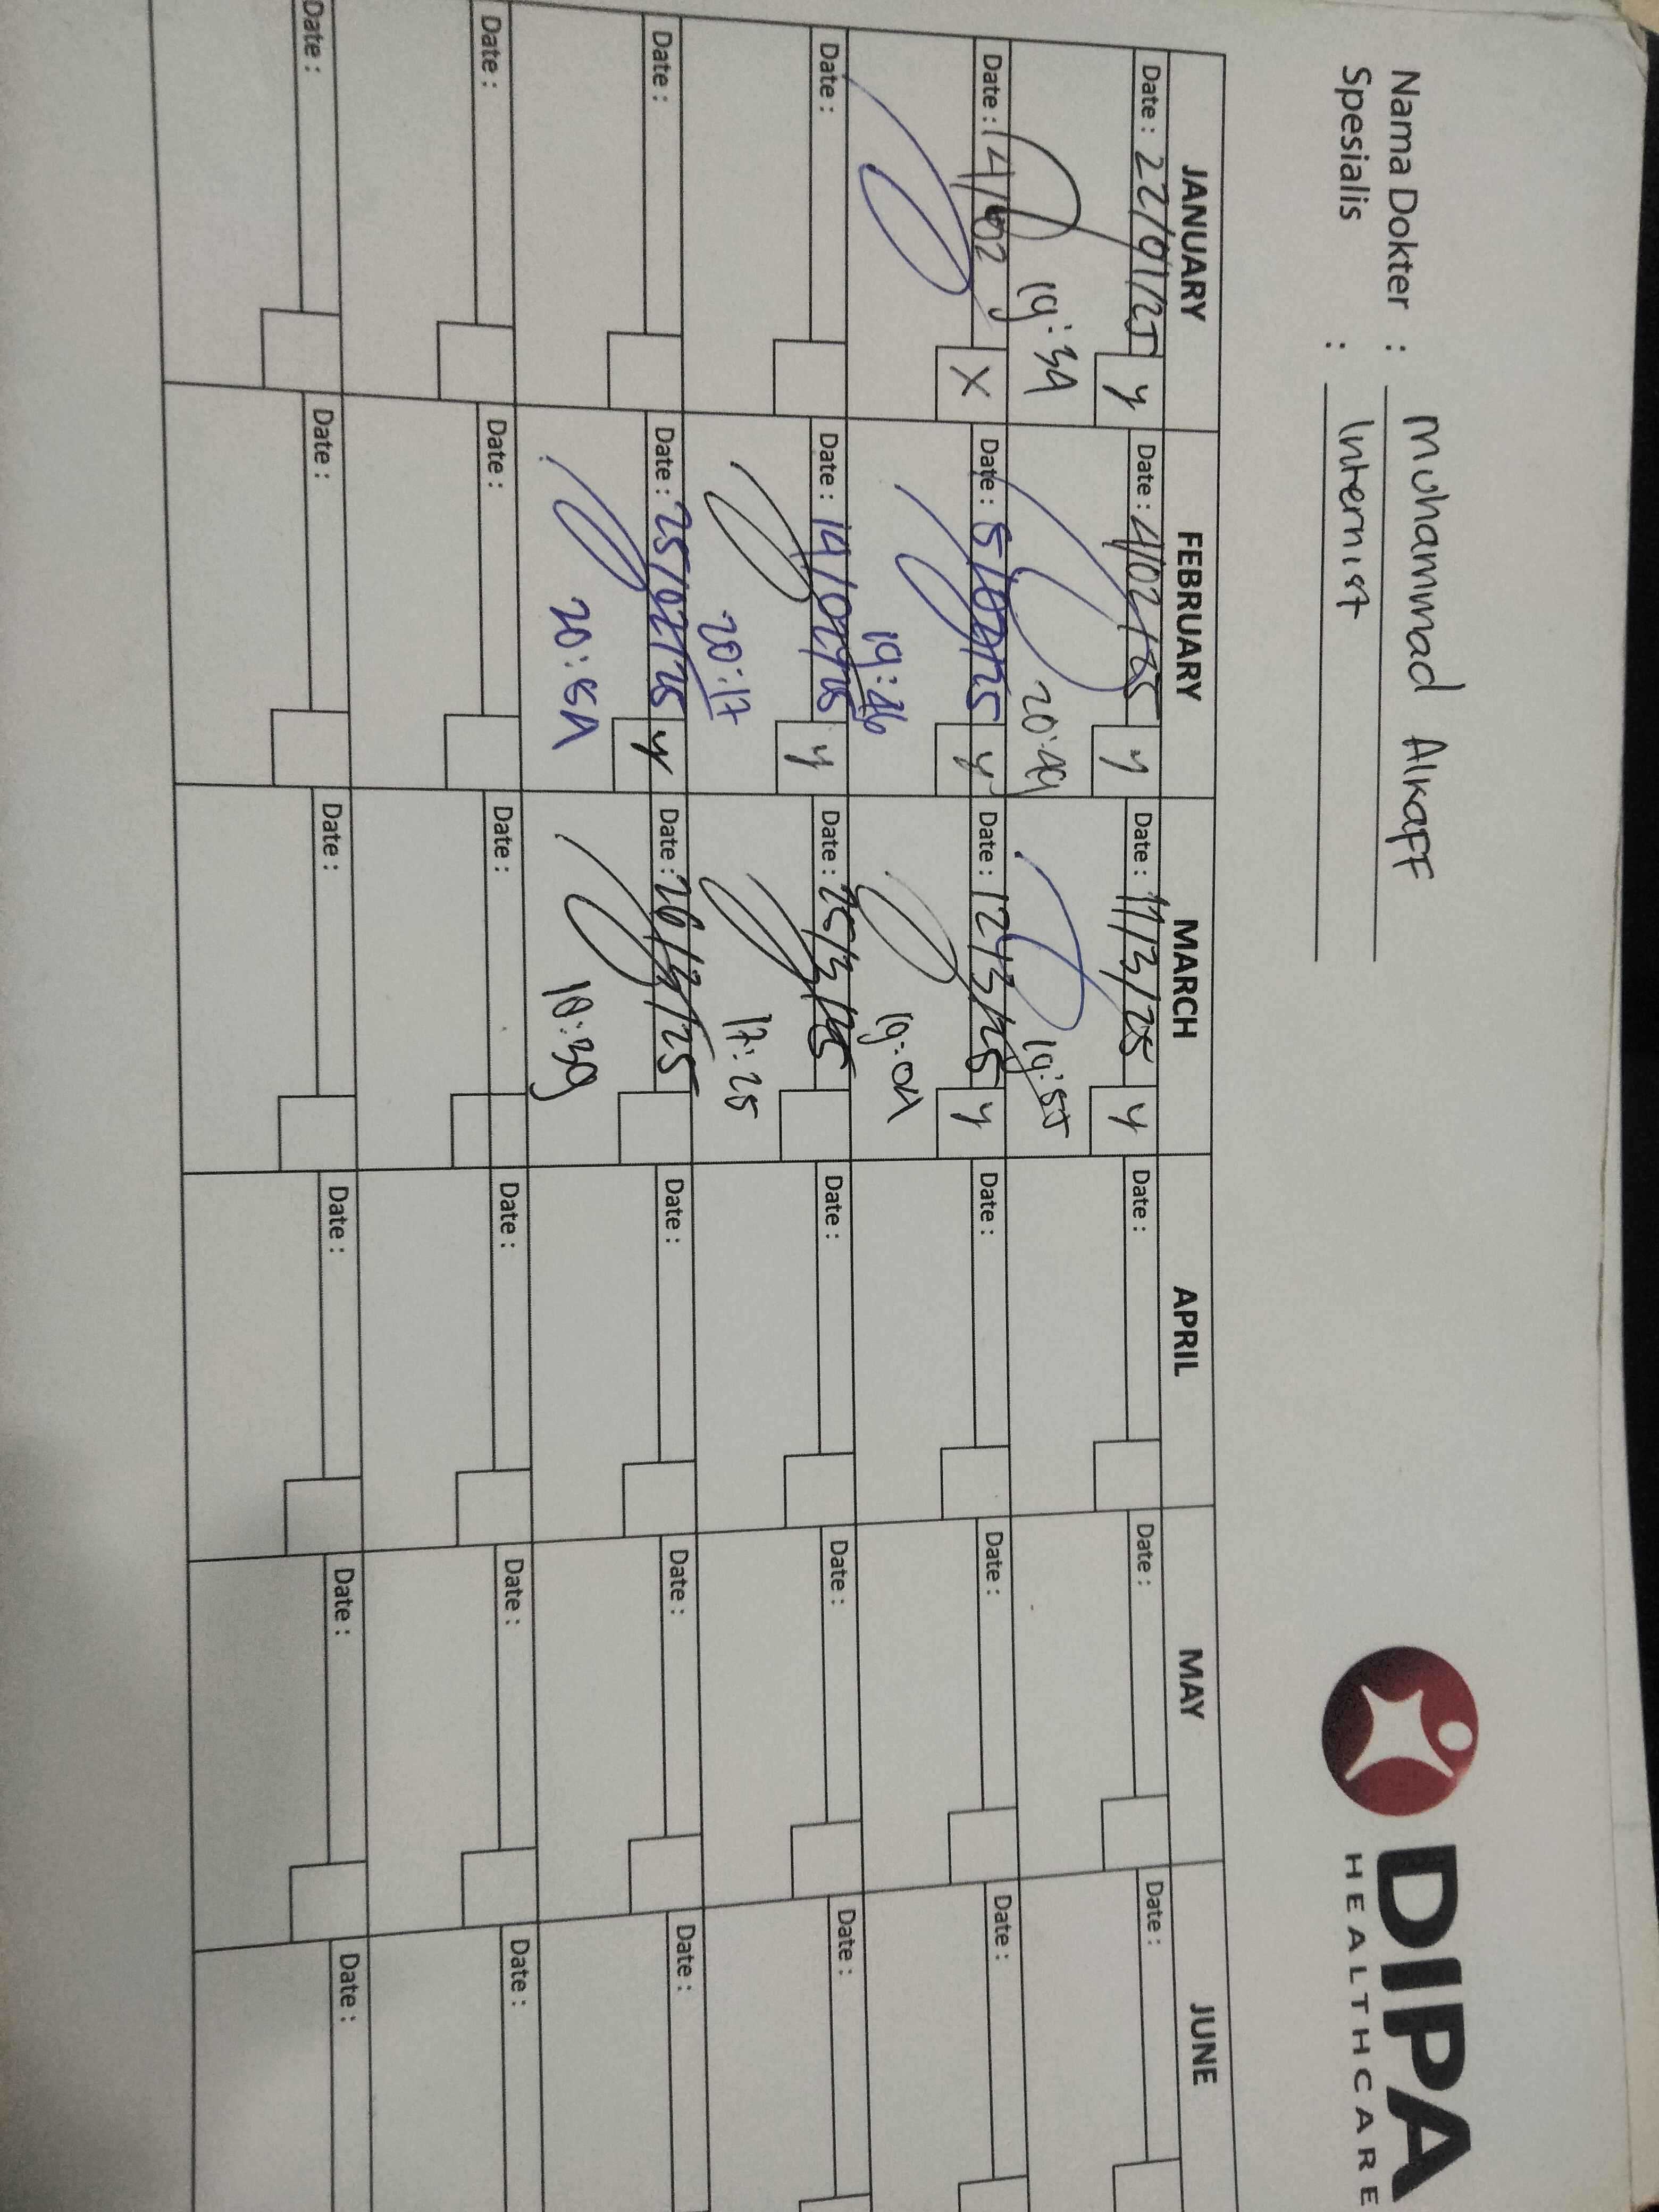 Nama Dokter : Muhammad Alkaff
Spesialis : Internist
DIPA
HEALTHCARE
JANUARY FEBRUARY MARCH APRIL MAY JUNE
Date : 22/01/25 y Date : 4/02/25 y Date : 11/3/25 y Date : Date : Date :
19:34 20:49 19:55
Date : 14/02 X Date : 5/02/25 y Date : 12/3/25 y Date : Date : Date :
19:46 19:04
Date : Date : 14/02/25 y Date : 25/3/25 Date : Date : Date :
20:17 17:25
Date : Date : 25/02/25 y Date : 26/3/25 Date : Date : Date :
20:54 18:39
Date : Date : Date : Date : Date : Date :
Date : Date : Date : Date : Date : Date :